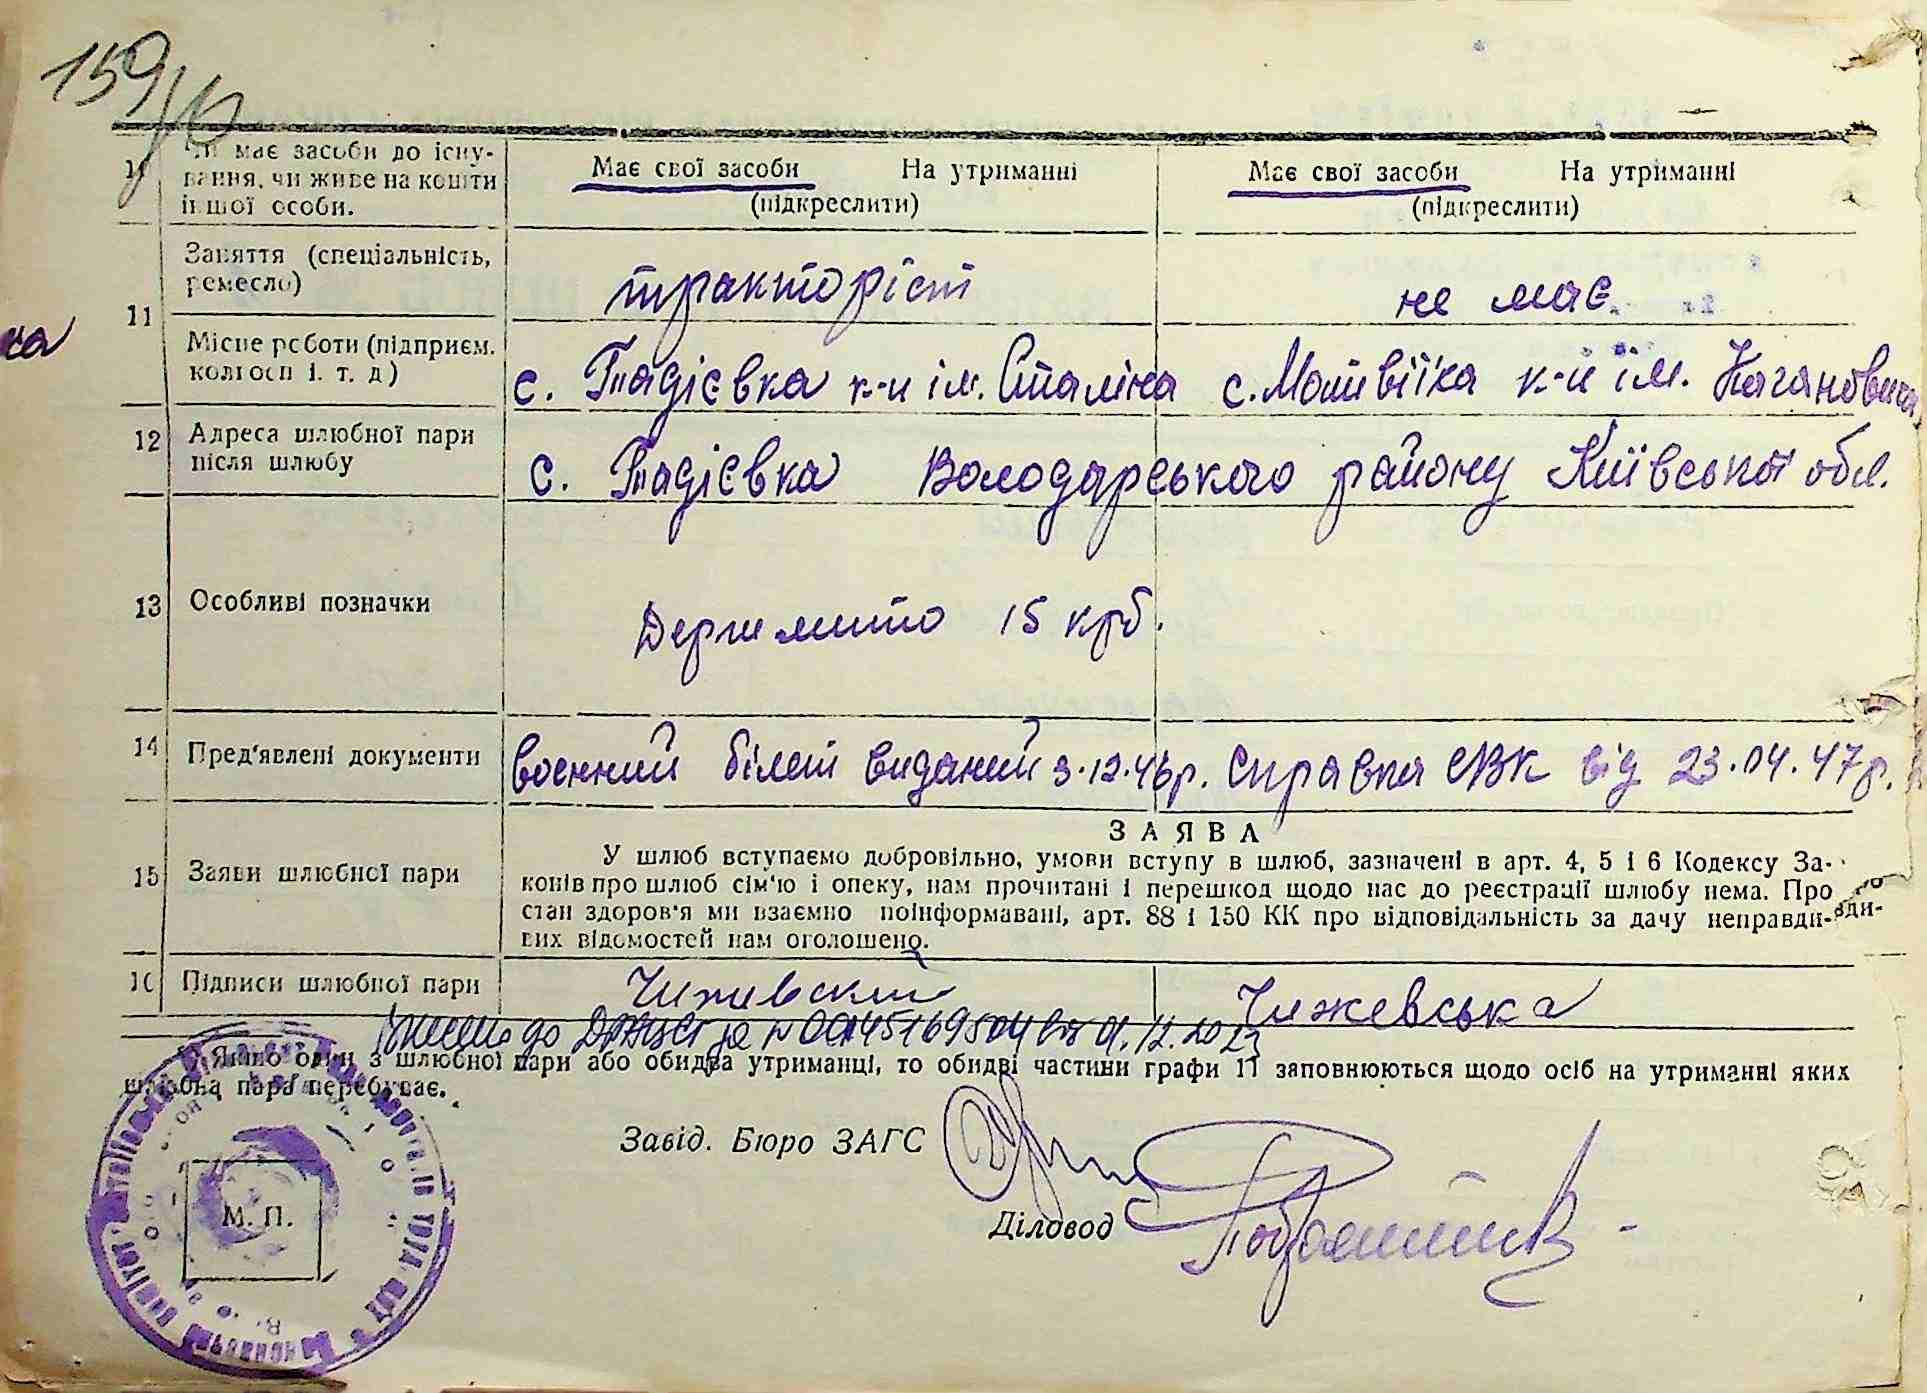 159
10 Чи має засоби до існу-
вання, чи живе на кошти
іншої особи.
Має свої засоби На утриманні
(підкреслити)
Має свої засоби На утриманні
(підкреслити)
11 Заняття (спеціальність,
ремесло)
тракторіст
не має
Місце роботи (підприєм.
колгосп і. т. д)
с. Тадієвка к-п ім. Сталіна
с. Матвіїка к-п ім. Кагановича
12 Адреса шлюбної пари
після шлюбу
с. Тадієвка Володарського району Київської обл.
13 Особливі позначки
Держмито 15 крб.
14 Пред'явлені документи
воєнний білет виданий 3.12.46р.
Справка СВК від 23.04.47р.
15 Заяви шлюбної пари
ЗАЯВА
У шлюб вступаємо добровільно, умови вступу в шлюб, зазначені в арт. 4, 5 і 6 Кодексу За-
конів про шлюб сім'ю і опеку, нам прочитані і перешкод щодо нас до реєстрації шлюбу нема. Про
стан здоров'я ми взаємно поінформавані, арт. 88 і 150 КК про відповідальність за дачу неправди-
вих відомостей нам оголошено.
16 Підписи шлюбної пари
Чижевский
Чижевська
Внесено до ДРАЦСГ за № 00145169504 від 01.12.2023
Якщо один з шлюбної пари або обидва утриманці, то обидві частини графи 11 заповнюються щодо осіб на утриманні яких
шлюбна пара перебуває.
Завід. Бюро ЗАГС
Діловод
М. П.